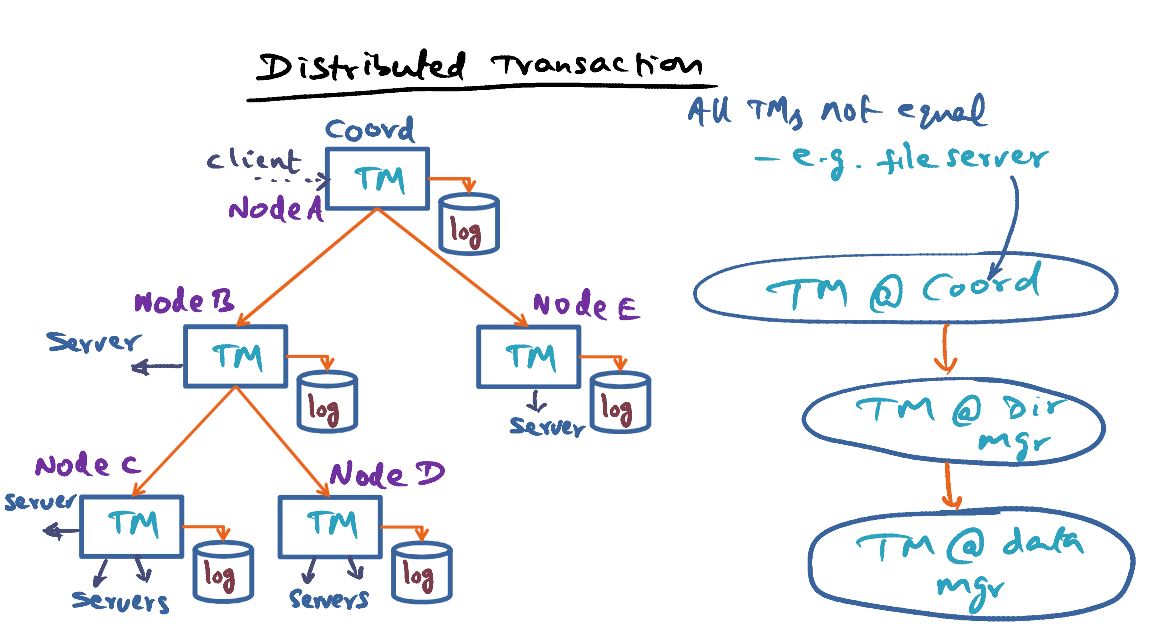 Distributed Transaction
Coord
client
TM
Node A
log
Node B
Server
TM
log
Node E
TM
log
Server
Node C
Server
TM
log
Servers
Node D
TM
log
Servers
All TMs not equal
- e.g. file server
TM @ Coord
TM @ Dir
mgr
TM @ data
mgr